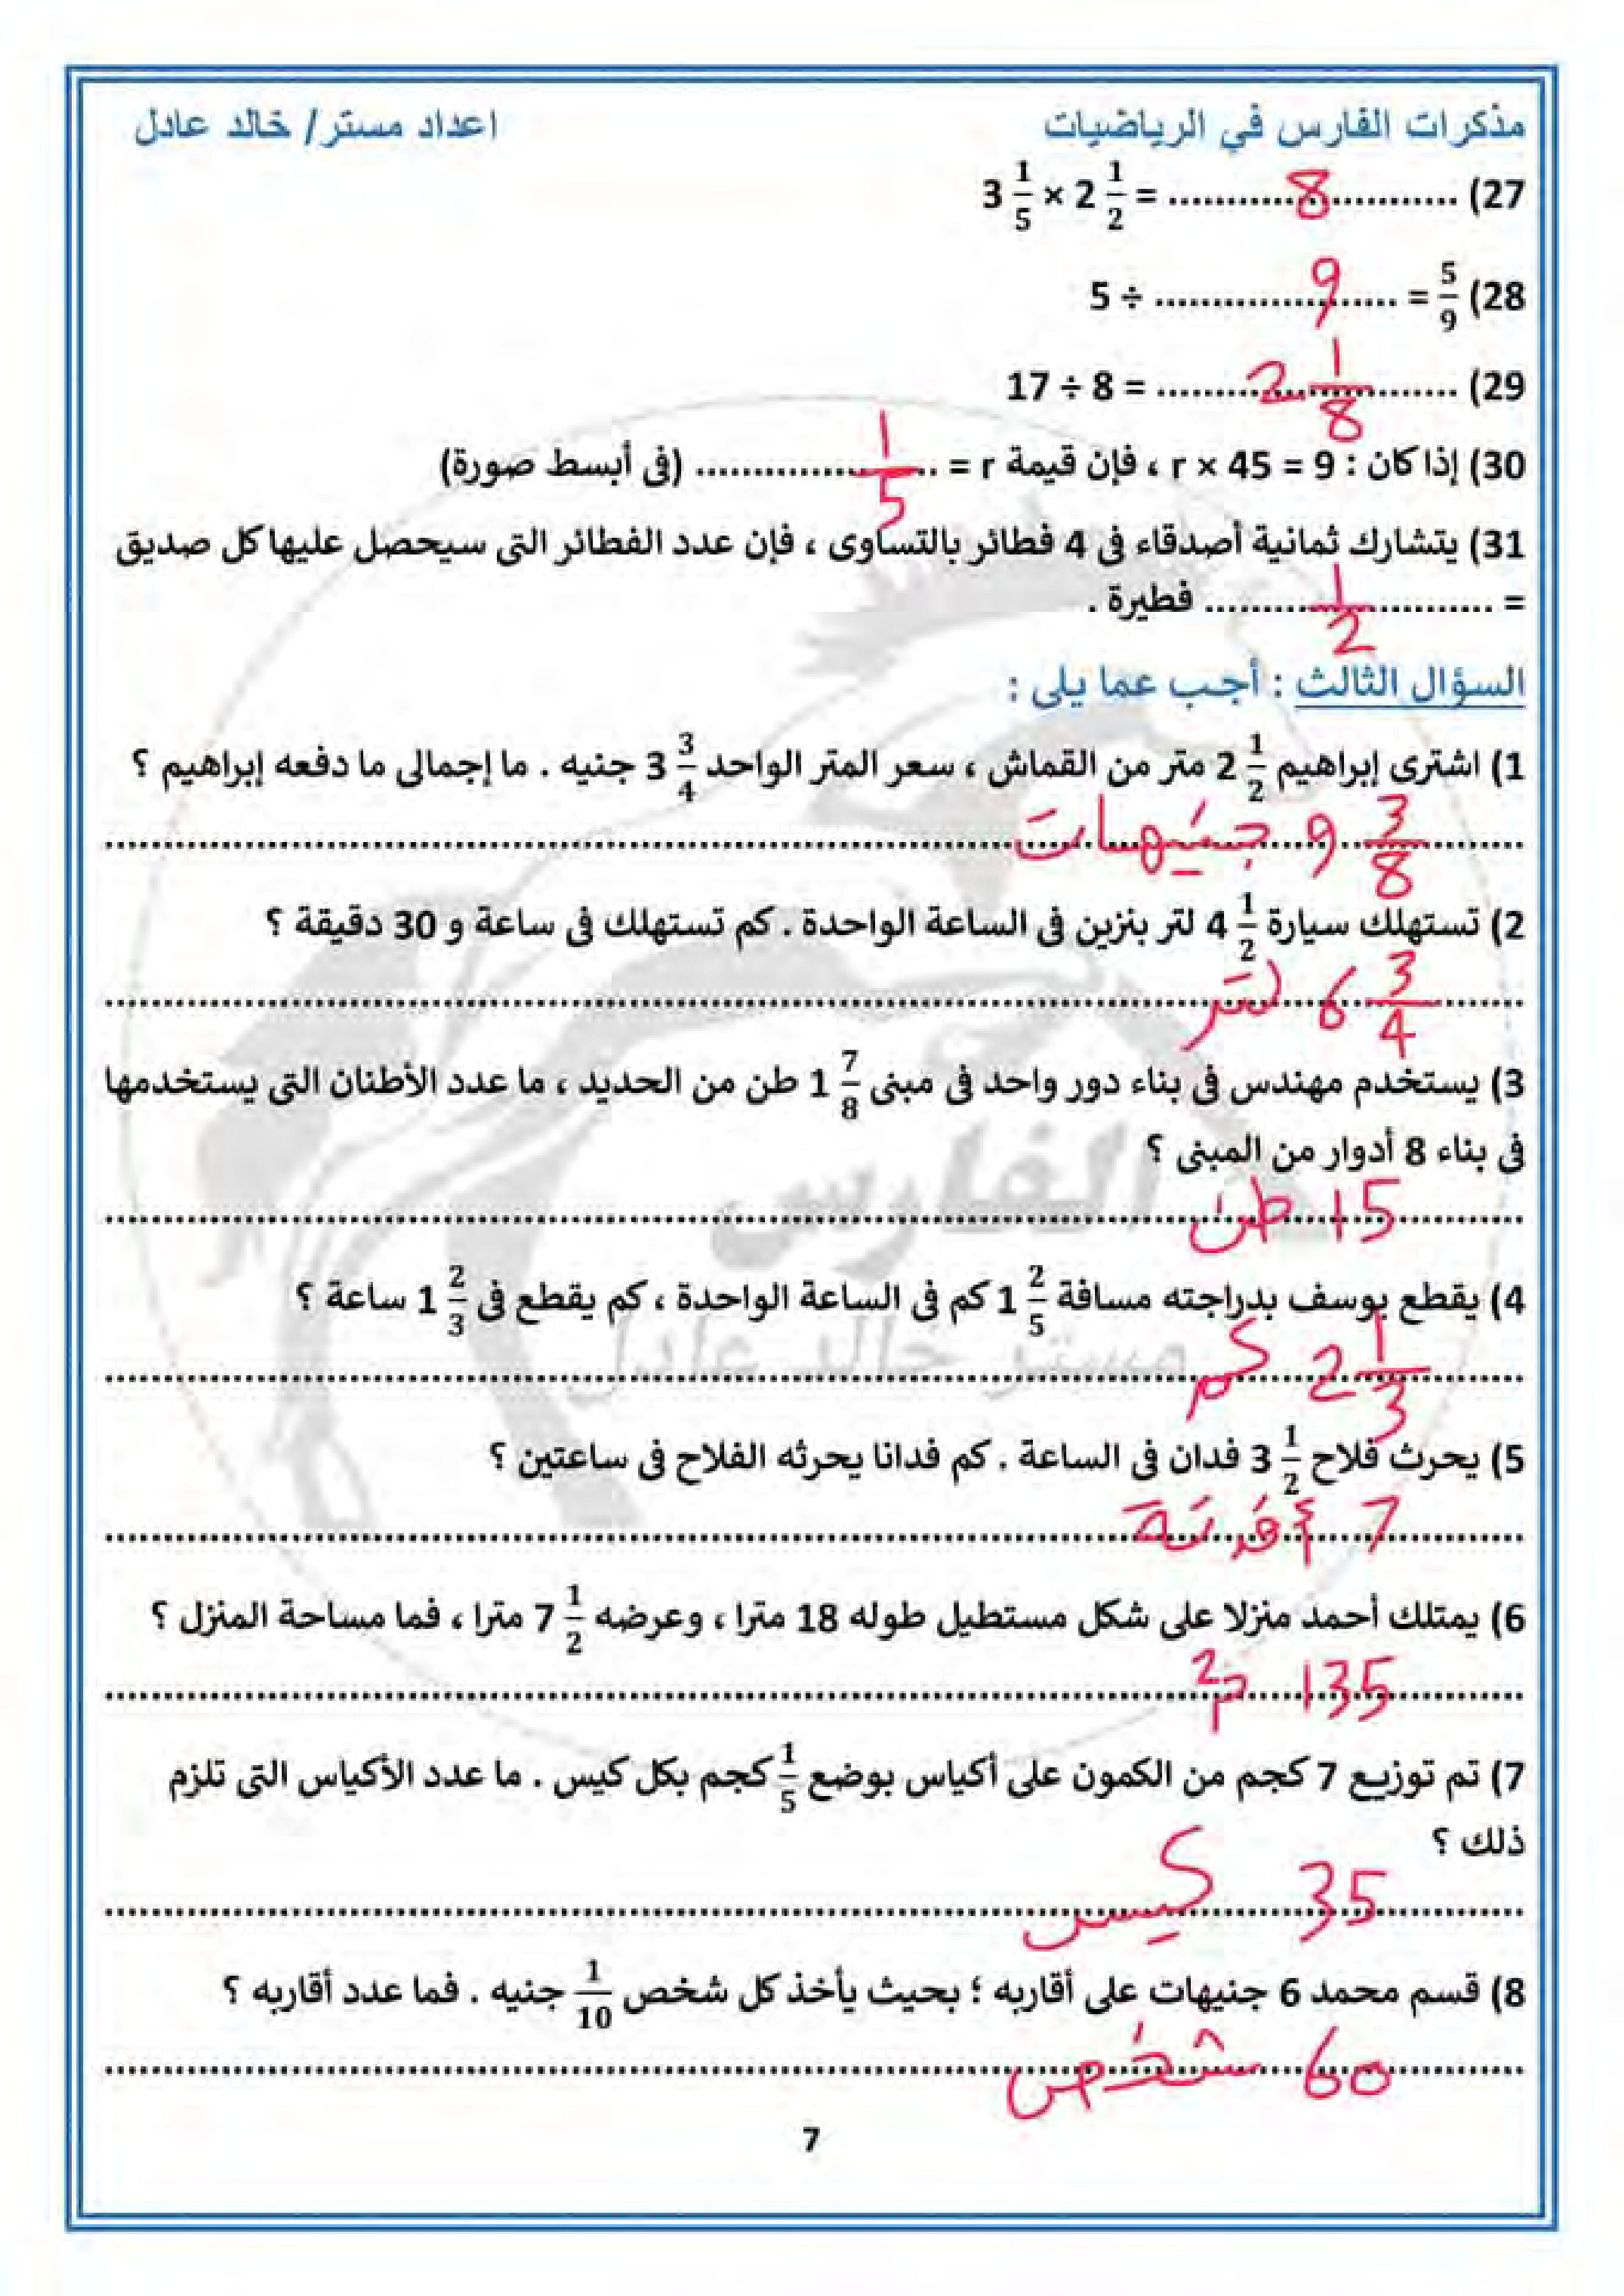 مذكرات الفارس في الرياضيات اعداد مستر/ خالد عادل
27) 3 1/5 × 2 1/2 = ............8............
28) 5/9 = 5 ÷ ............9......
29) 17 ÷ 8 = ........2 1/8........
30) إذا كان : r × 45 = 9 ، فإن قيمة r = ............1/5.... (فى أبسط صورة)
31) يتشارك ثمانية أصدقاء فى 4 فطائر بالتساوى ، فإن عدد الفطائر التى سيحصل عليها كل صديق
= ............1/2............ فطيرة .
السؤال الثالث : أجب عما يلى :
1) اشترى إبراهيم 2 1/2 متر من القماش ، سعر المتر الواحد 3 3/4 جنيه . ما إجمالى ما دفعه إبراهيم ؟
9 3/8 جنيهات
2) تستهلك سيارة 4 1/2 لتر بنزين فى الساعة الواحدة . كم تستهلك فى ساعة و 30 دقيقة ؟
6 3/4 لتر
3) يستخدم مهندس فى بناء دور واحد فى مبنى 1 7/8 طن من الحديد ، ما عدد الأطنان التى يستخدمها
فى بناء 8 أدوار من المبنى ؟
15 طن
4) يقطع يوسف بدراجته مسافة 1 2/5 كم فى الساعة الواحدة ، كم يقطع فى 1 2/3 ساعة ؟
2 1/3 كم
5) يحرث فلاح 3 1/2 فدان فى الساعة . كم فدانا يحرثه الفلاح فى ساعتين ؟
7 أفدنة
6) يمتلك أحمد منزلا على شكل مستطيل طوله 18 مترا ، وعرضه 7 1/2 مترا ، فما مساحة المنزل ؟
135 م²
7) تم توزيع 7 كجم من الكمون على أكياس بوضع 1/5 كجم بكل كيس . ما عدد الأكياس التى تلزم
ذلك ؟
35 كيس
8) قسم محمد 6 جنيهات على أقاربه ؛ بحيث يأخذ كل شخص 1/10 جنيه . فما عدد أقاربه ؟
60 شخص
7
الفارس
مستر خالد عادل